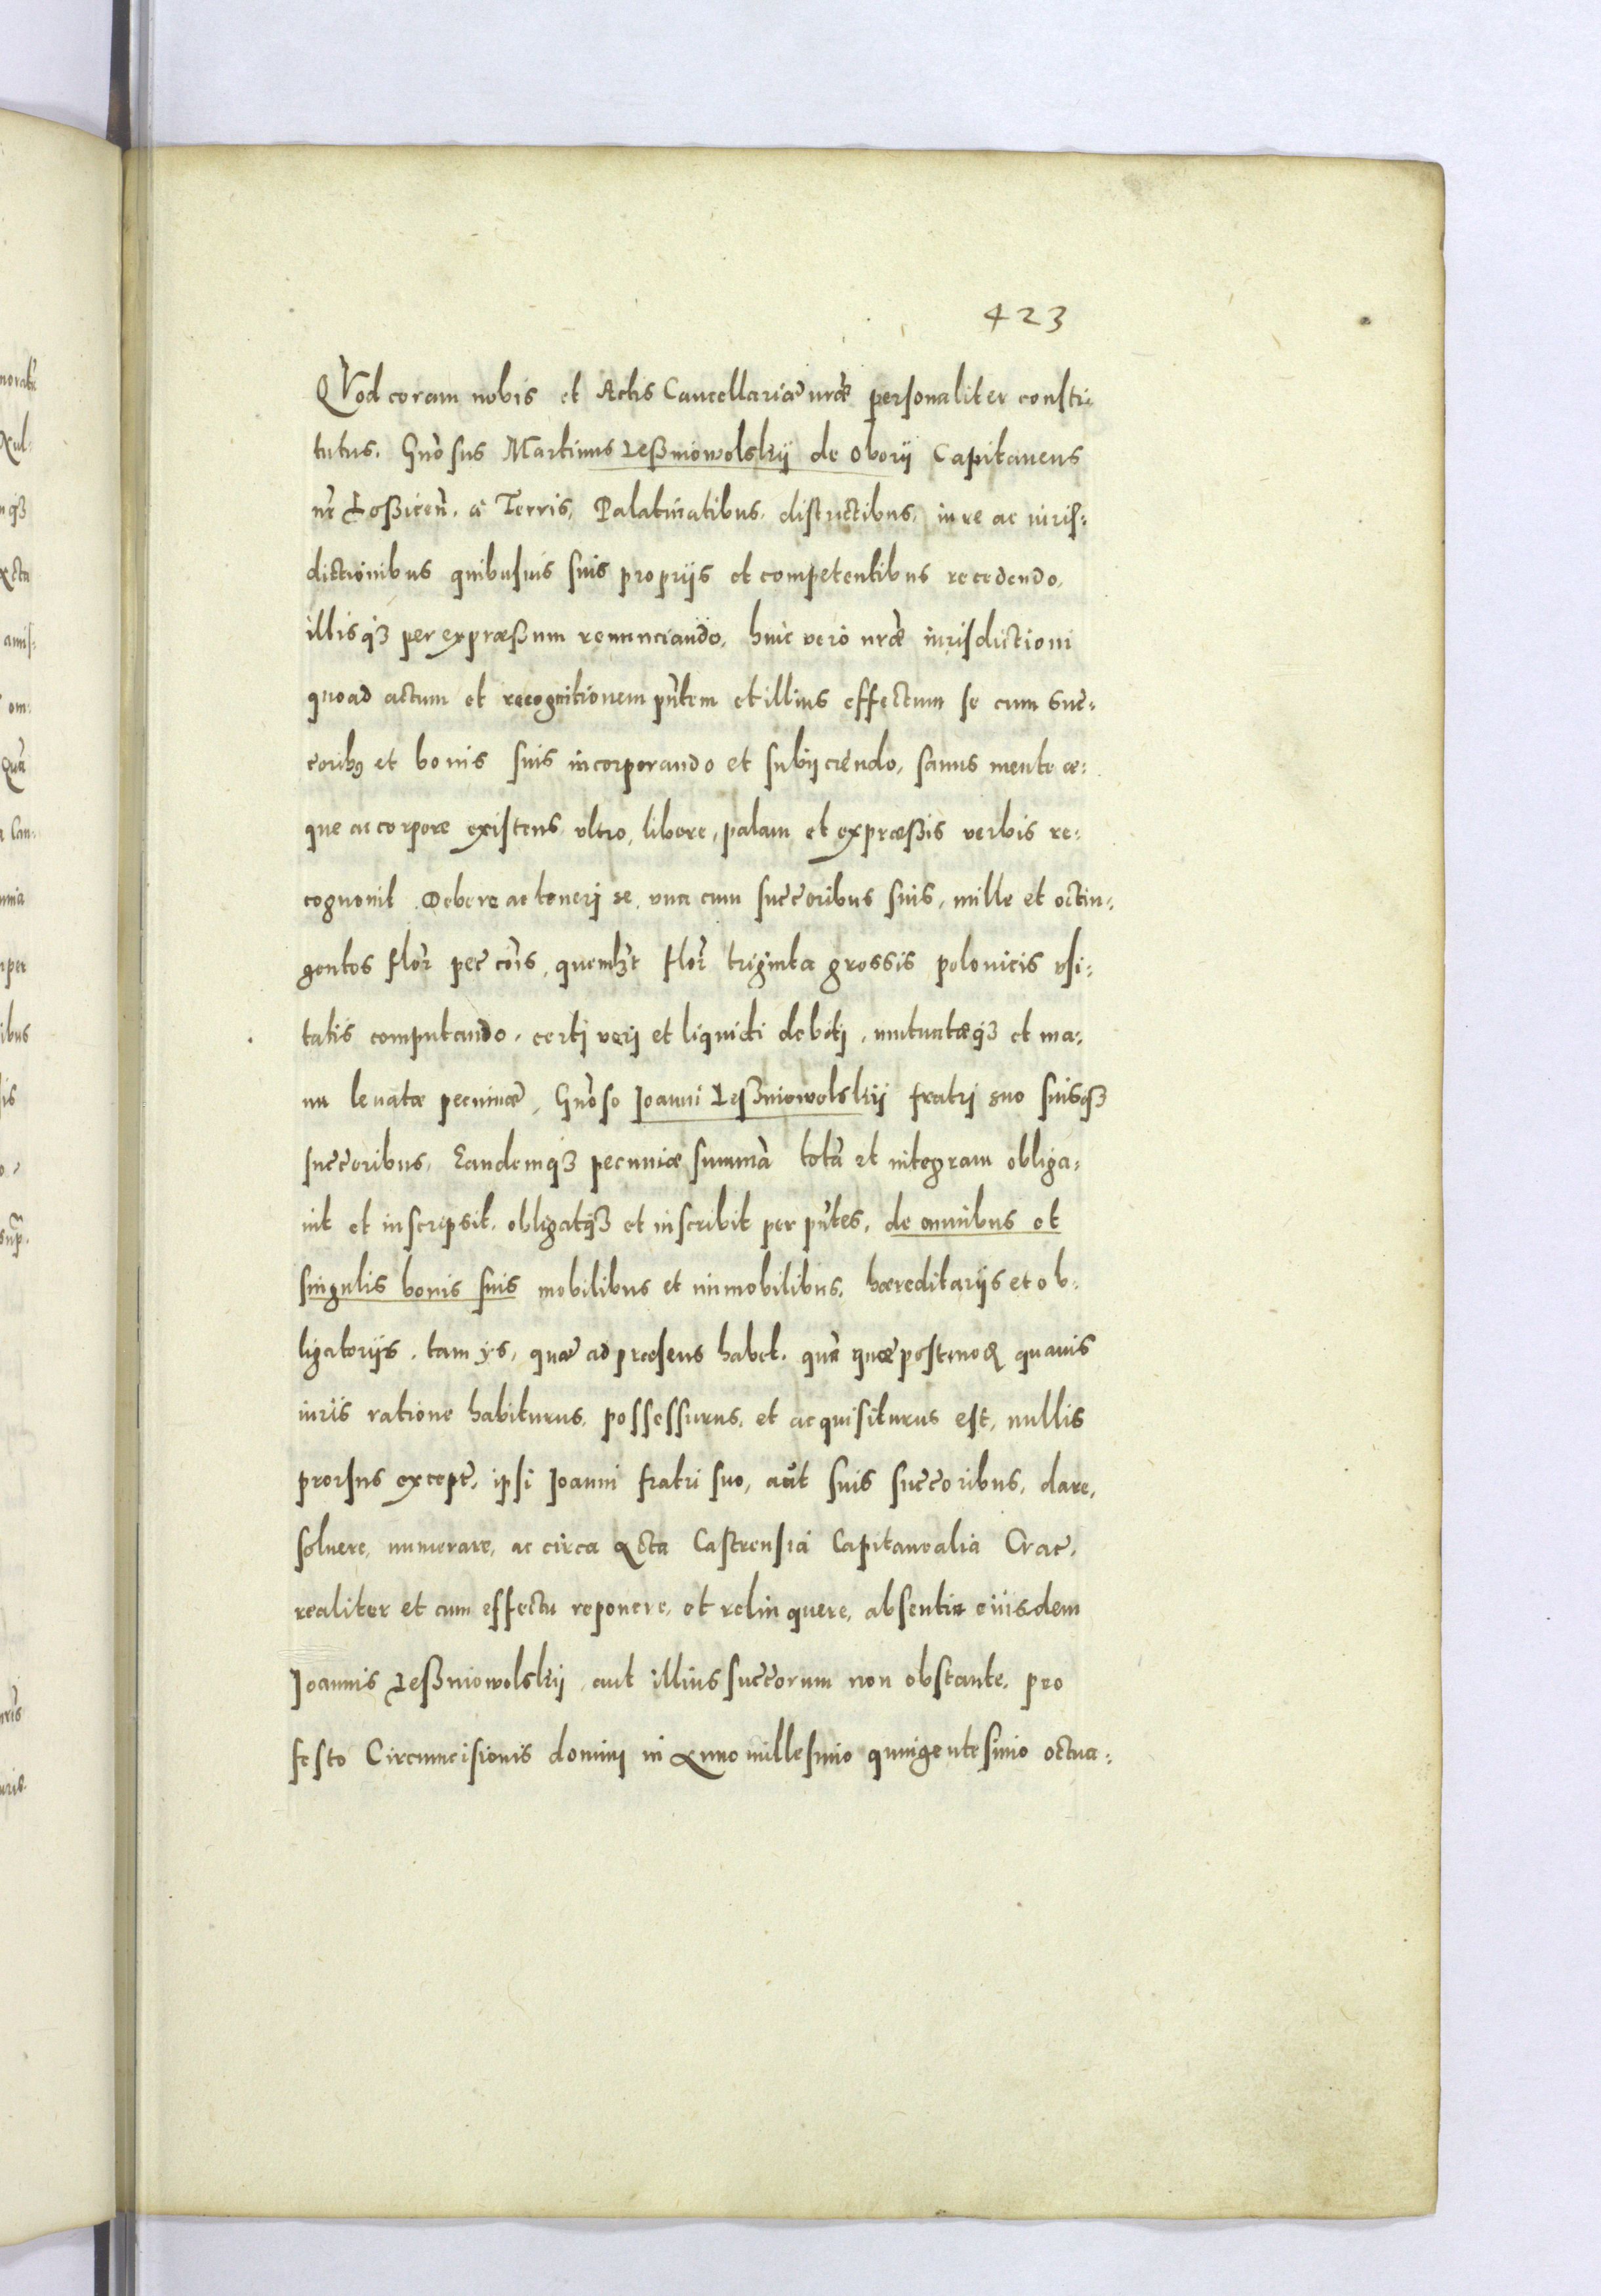 423
QVod coram nobis et Actis Cancellariæ nr̃æ personaliter consti
tutus. Gnõsus Martinus Leßniowolskij de Oborij Capitaneus
nr̃ Loßicen̄. à Terris, Palatinatibus, districtibus, iure ac iuris-
dictionibus quibusuis suis proprijs et competentibus recedendo,
illisq3 per expræßum renunciando, huic verò nr̃æ iurisdictioni
quoad actum et recognitionem pn̄tem et illius effectum se cum suc̄-
corib9 et bonis suis incorporando et subijciendo, sanus mente æ-
que ac corpore existens, vltro, libere, palam et expræßis verbis re-
cognouit Debere ac tenerj se vna cum suc̄coribus suis, mille et octin-
gentos flor̄ pec̄ cōis, quemlꝫt flor̄ triginta grossis polonicis vsi-
tatis computando, certj verj et liquidi debitj, mutuatæq3 et ma-
nu leuatæ pecuniæ, Gnõso Joanni Leßniowolskij fratrj suo suisq3
suc̄coribus, Eandemq3 pecuniæ summā totā et integram obliga-
uit et inscripsit, obligatq3 et inscribit per pn̄tes, de omnibus et
singulis bonis suis mobilibus et immobilibus, hæreditarijs et ob-
ligatorijs, tam ys, quæ ad præsens habet, quā quæ postmoꝝ quauis
iuris ratione habiturus, possessurus, et acquisiturus est, nullis
prorsus except̄, ipsi Joanni fratri suo, aut suis suc̄coribus, dare,
soluere, numerare, ac circa Acta Castrensia Capitanealia Crac̄,
realiter et cum effectu reponere, et relinquere, absentia eiusdem
Joannis Leßniowolskij, aut illius suc̄corum non obstante, pro
festo Circumcisionis dominj in Anno millesimo quingentesimo octua-